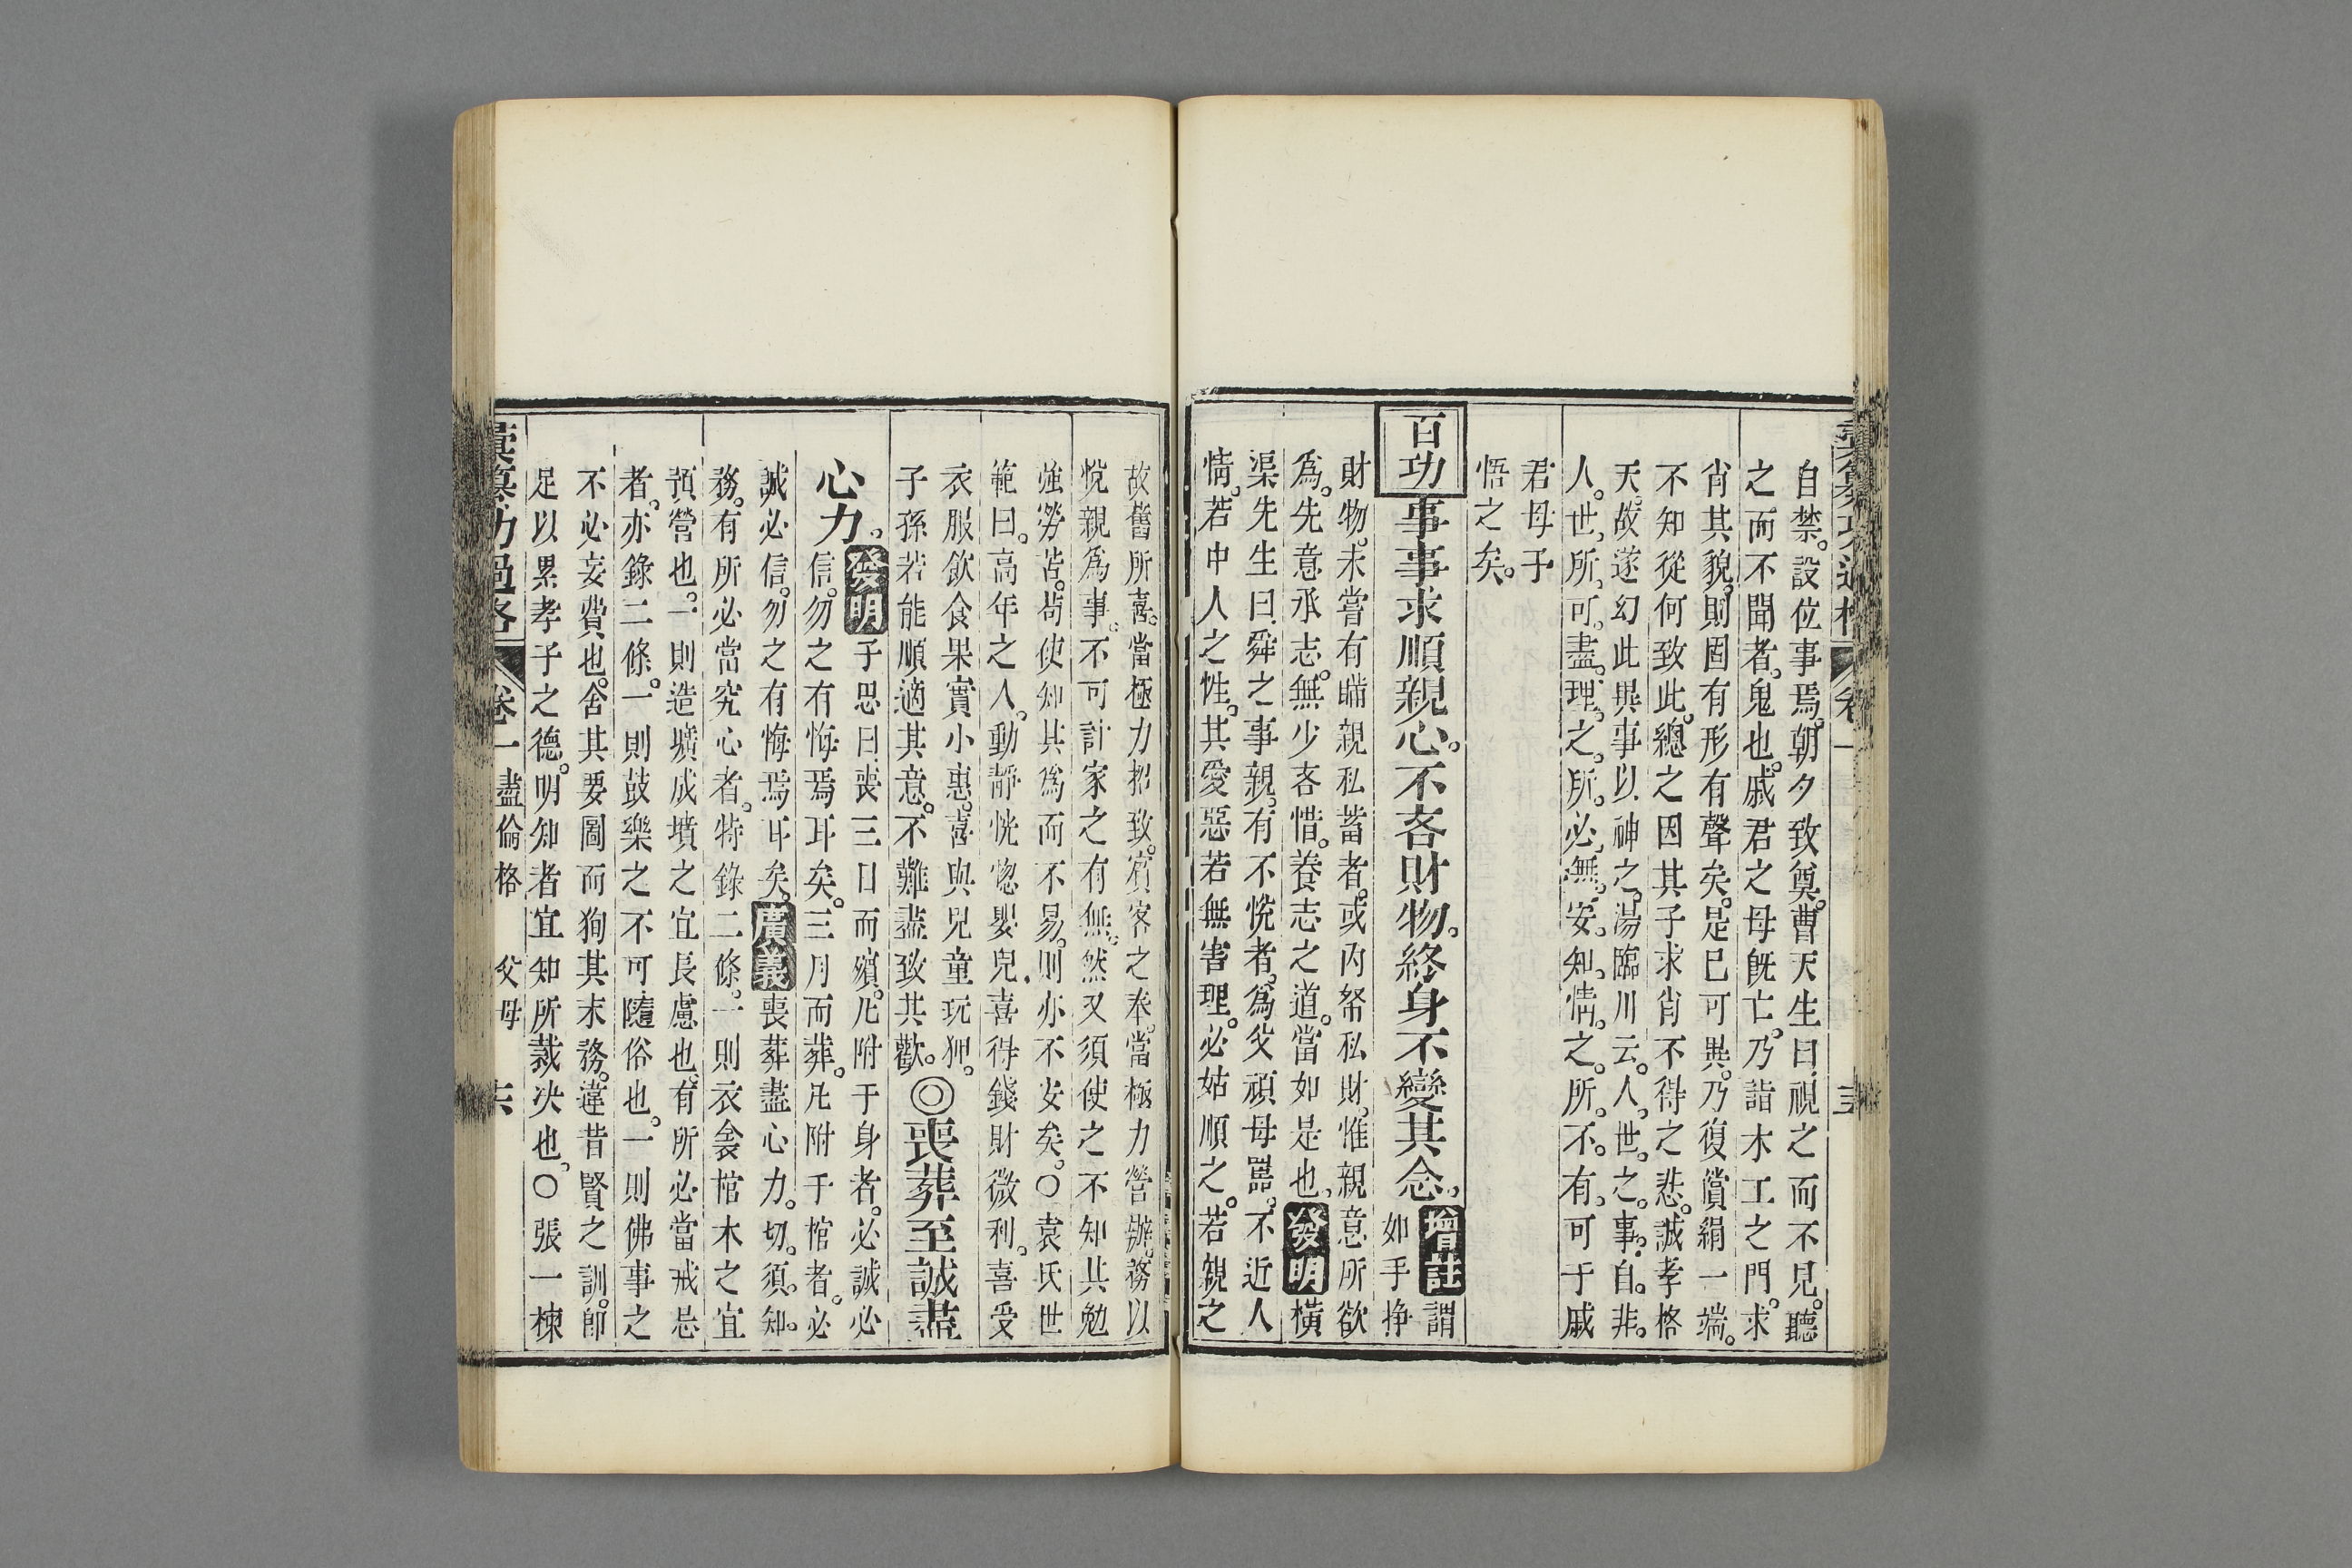 自禁。設位事焉。朝夕致奠。曹天生曰。視之而不見。聽
之而不聞者。鬼也。戚君之母旣亡。乃詣木工之門。求
肖其貌。則固有形有聲矣。是已可異。乃復償絹一端。
不知從何致此。總之因其子求肖不得之悲。誠孝格
天。故遂幻此異事以神之。湯臨川云。人。世。之。事。自。非。
人。世。所。可。盡。理。之。所。必。無。安。知。情。之。所。不。有。可于戚
君母子
悟之矣。
百功
事事求順親心。不吝財物。終身不變其念。
增註
謂
如手掙
財物。未嘗有瞞親私蓄者。或內帑私財。惟親意所欲
爲。先意承志。無少吝惜。養志之道。當如是也。發明橫
渠先生曰。舜之事親。有不悅者。爲父頑母嚚。不近人
情。若中人之性。其愛惡若無害理。必姑順之。若親之
故舊所喜。當極力招致。賓客之奉。當極力營辦。務以
悅親爲事。不可計家之有無。然又須使之不知其勉
強勞苦。苟使知其爲而不易。則亦不安矣。○袁氏世
範曰。高年之人。動靜恍惚嬰兒。喜得錢財微利。喜受
衣服飮食果實小惠。喜與兒童玩狎。
子孫若能順適其意。不難盡致其歡。◎喪葬至誠盡
心力。
發明
子思曰。喪三日而殯。凡附于身者。必誠必
信。勿之有悔焉耳矣。三月而葬。凡附于棺者。必
誠必信。勿之有悔焉耳矣。廣義喪葬盡心力。切。須。知。
務。有所必當究心者。特錄二條。一則衣衾棺木之宜
預營也。一則造壙成墳之宜長慮也。有所必當戒忌
者。亦錄二條。一則鼓樂之不可隨俗也。一則佛事之
不必妄費也。舍其要圖而狥其末務。違昔賢之訓。卽
足以累孝子之德。明知者宜知所裁决也。○張一棟
彙纂功過格
卷一
盡倫格
父母